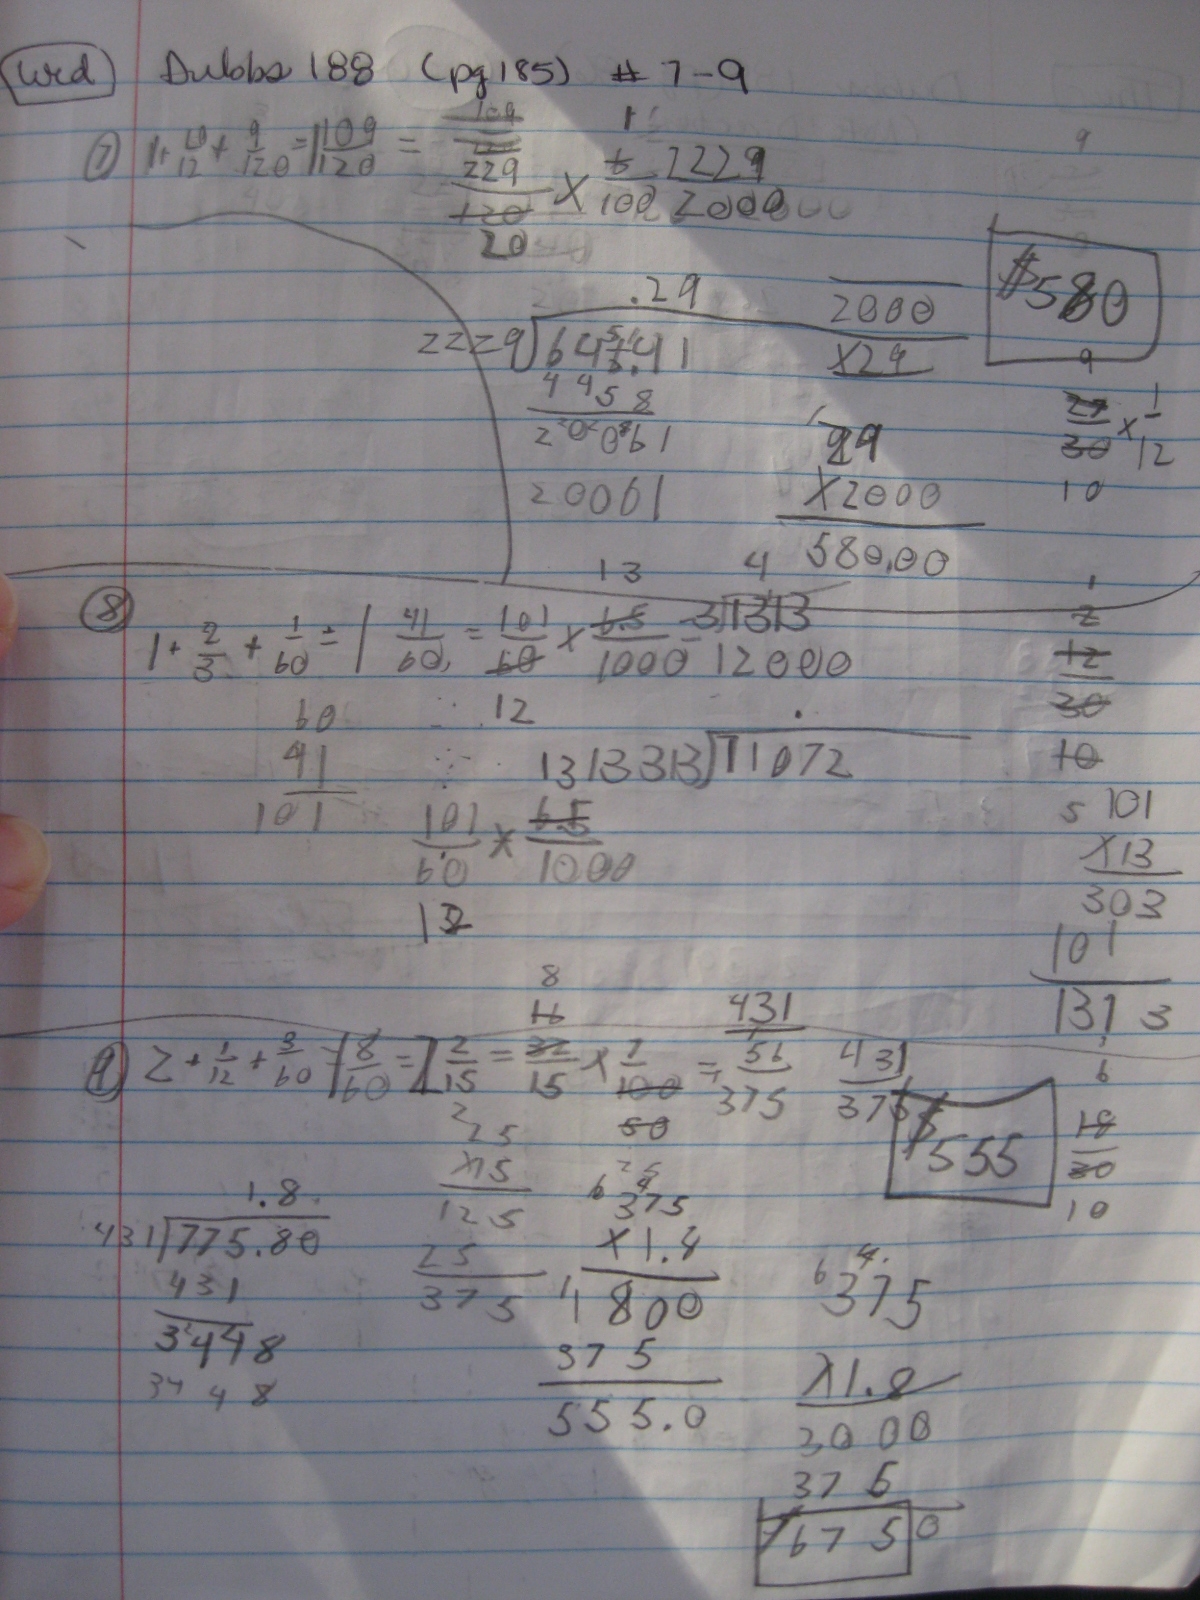 Wed Dubbs 188 (pg 185) # 7-9
7 1 + 10/12 + 9/120 = 1 109/120 = 229/120 × 6/100 2229/2000
20
.29
2229 ) 64 .41
4458
20061
20061
2000
×29
29
×2000
580.00
$580
9
27/30 × 1/12
10
8 1 + 2/3 + 1/60 = 1 41/60 = 101/60 × 6.5/1000 = 1313/12000
13
12
60
41
101
1313313 ) 11072
101/60 × 6.5/1000
12
1
2
12
30
10
101
×13
303
101
1313
9 2 + 1/12 + 3/60 = 8/60 = 2 2/15 = 32/15 × 7/100 = 56/375 431/375
8
16
50
431
$555
25
×15
125
25
375
1.8
431 ) 775.80
431
3448
3448
375
×1.4
1800
375
555.0
6
18
30
10
375
×1.8
3000
375
6750